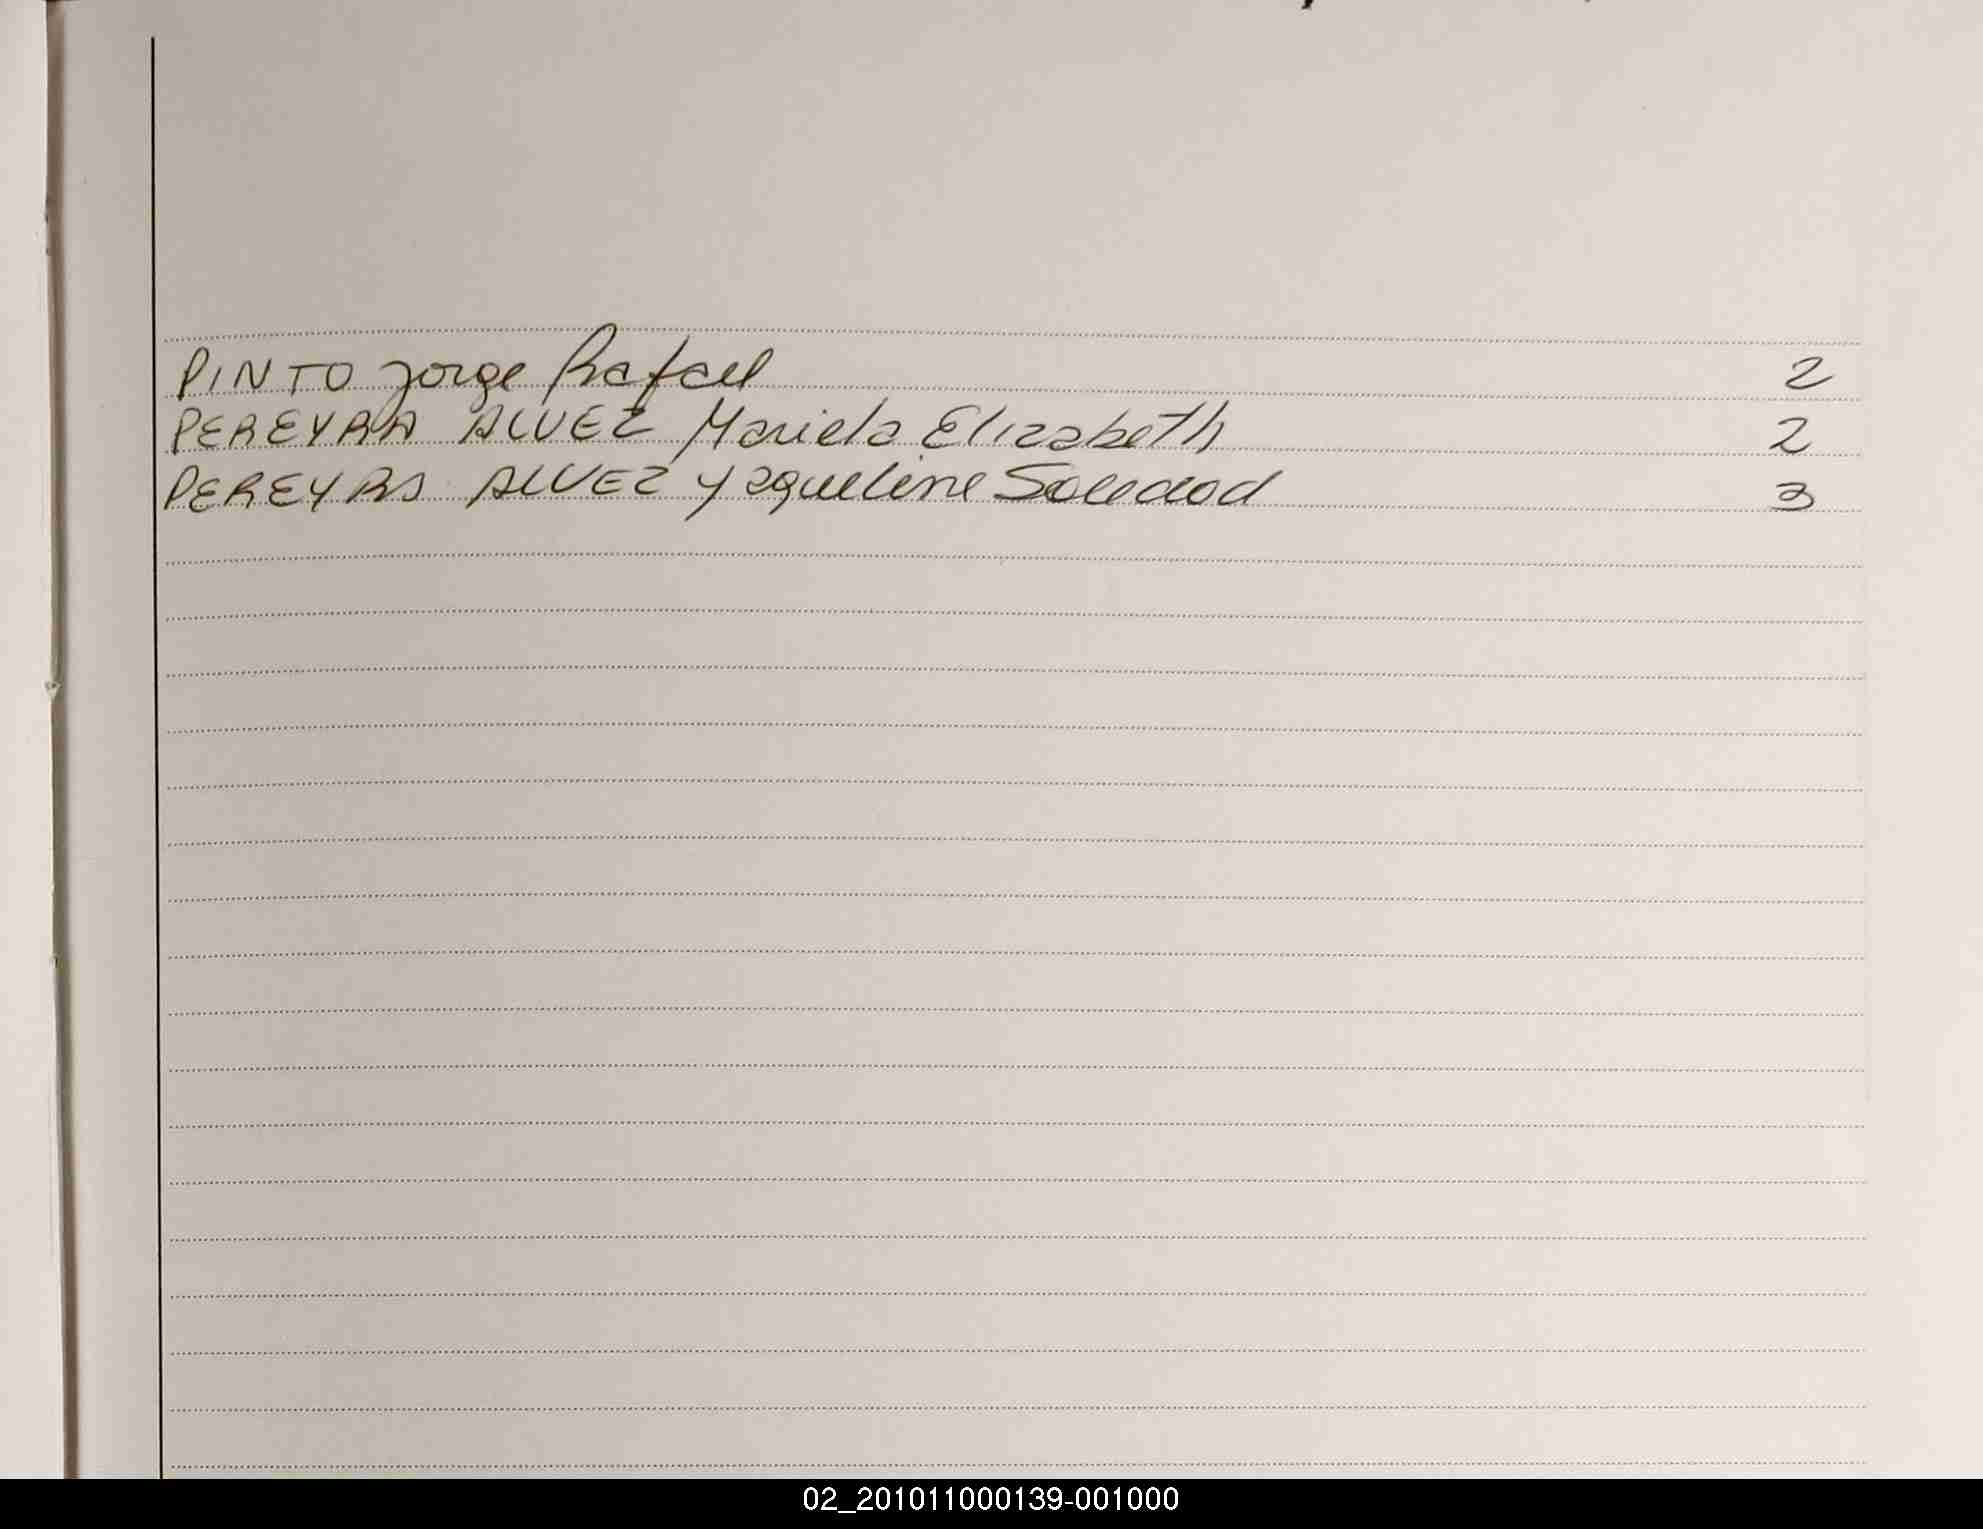 PINTO Jorge Rafael 2
PEREYRA ALVEZ Mariela Elizabeth 2
PEREYRA ALVEZ Yaqueline Soledad 3
02_201011000139-001000